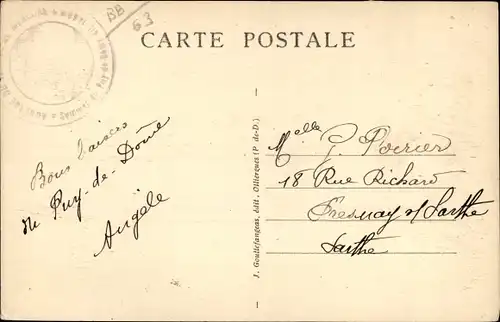 BB
63
CARTE POSTALE
Bons baisers
du Puy-de-Dôme
Angèle
J. Gouttefangeas, édit., Olliergues (P. de-D.)
Melle G. Poirier
18 Rue Richard
Fresnay s/ Sarthe
Sarthe